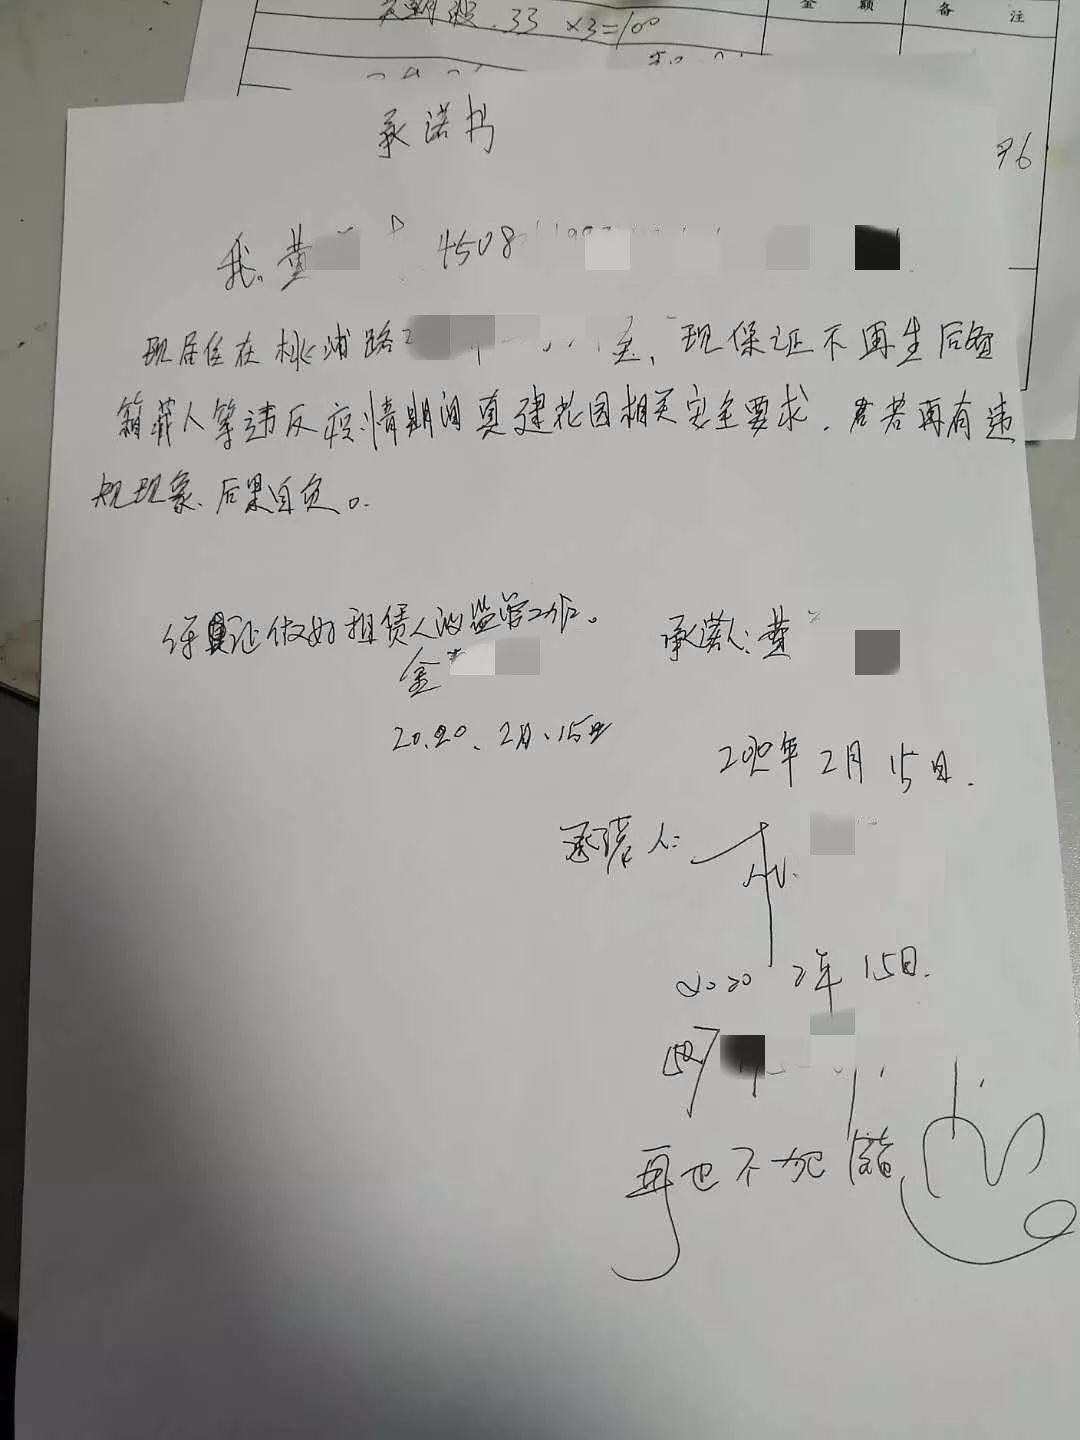 33 ×3=100
金 额 备 注
承诺书
96
我。黄 4508
现居住在桃浦路 现保证不再生后备
箱藏人等违反疫情期间真建花园相关安全要求。若再有违
规现象、后果自负。
保证做好租赁人的监管工作。 承诺人:黄
金
2020、2月、15日
2020年2月15日.
承诺人:
2020 2年15日.
再也不犯错